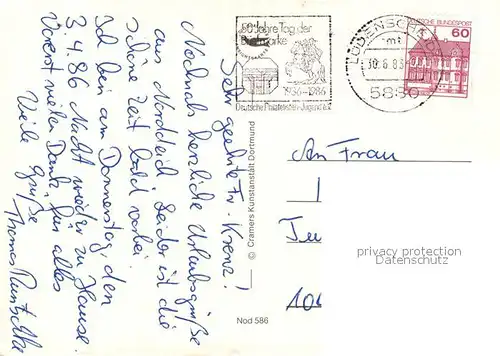 Sehr geehrte Fr. Krenz!
Nochmals herzliche Urlaubsgrüße
aus Norddeich. Leider ist die
schöne Zeit bald vorbei.
Ich bin am Donnerstag, den
3.4.86 Nacht wieder zu Hause.
Vorerst vielen Dank für alles
Viele Grüße
Thomas
50 Jahre Tag der
Briefmarke
1936-1986
Deutsche Philatelisten-Jugend e.V.
LÜDENSCHEID
mt
5880
DEUTSCHE BUNDESPOST
60
© Cramers Kunstanstalt Dortmund
An Frau
privacy protection
Datenschutz
Nod 586